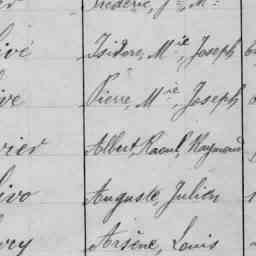 Frédéric, J M
livé Isidore, M^ie, Joseph
ive Pierre, M^ie, Joseph
vier Albert, Raoul, Raymond
livo Auguste, Julien
vey Arsène, Louis